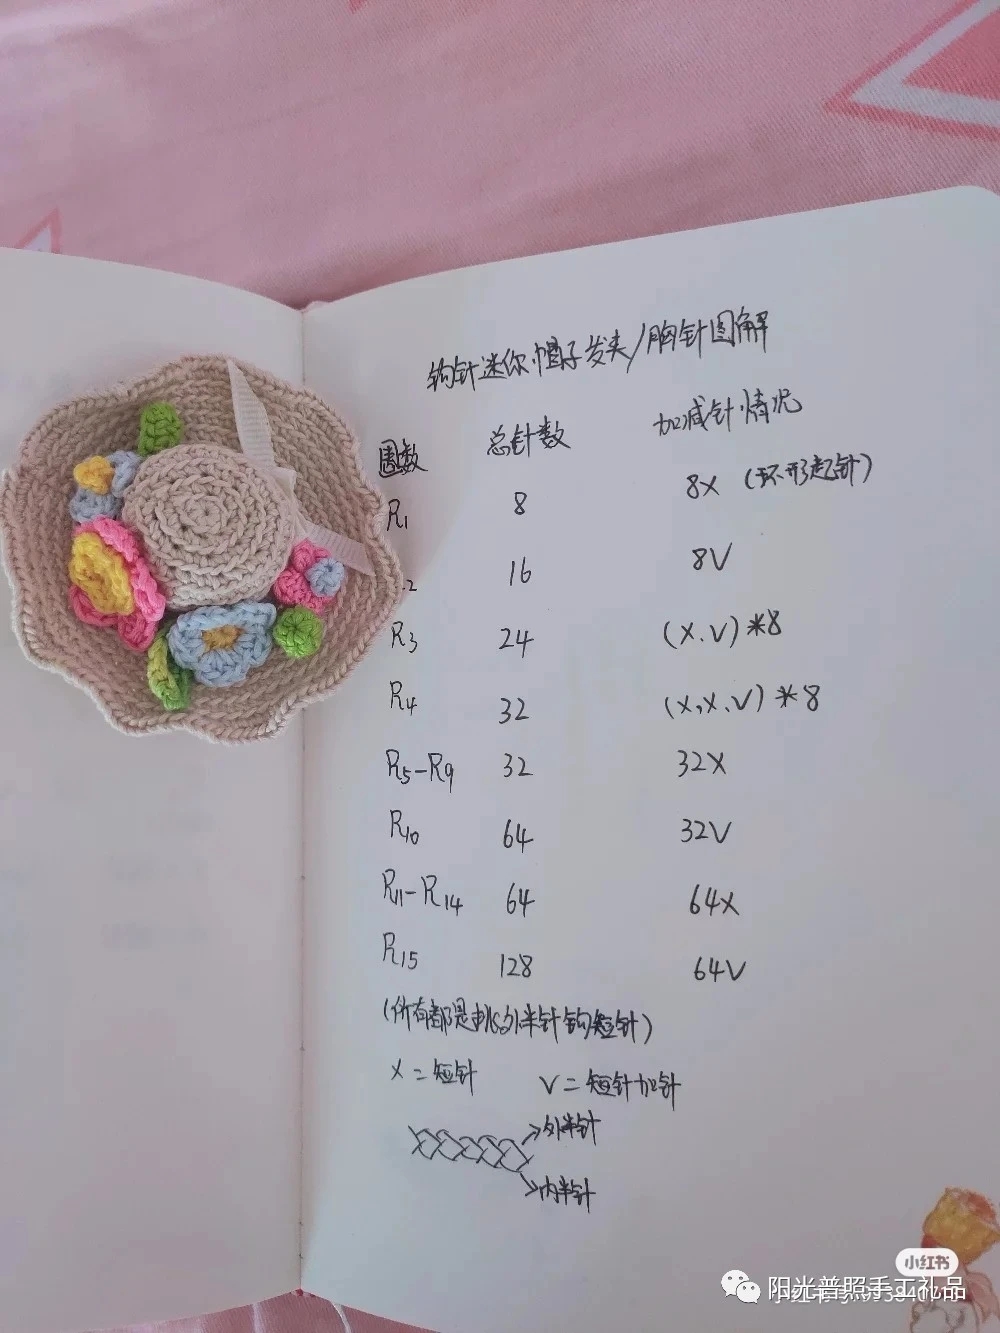 钩针迷你帽子发夹/胸针图解
圈数 总针数 加减针情况
R1 8 8X (环形起针)
2 16 8V
R3 24 (X.V)*8
R4 32 (X,X.V)*8
R5-R9 32 32X
R10 64 32V
R11-R14 64 64X
R15 128 64V
(所有都是挑外半针钩短针)
X=短针 V=短针加针
外半针
内半针
小红书
阳光普照手工礼品